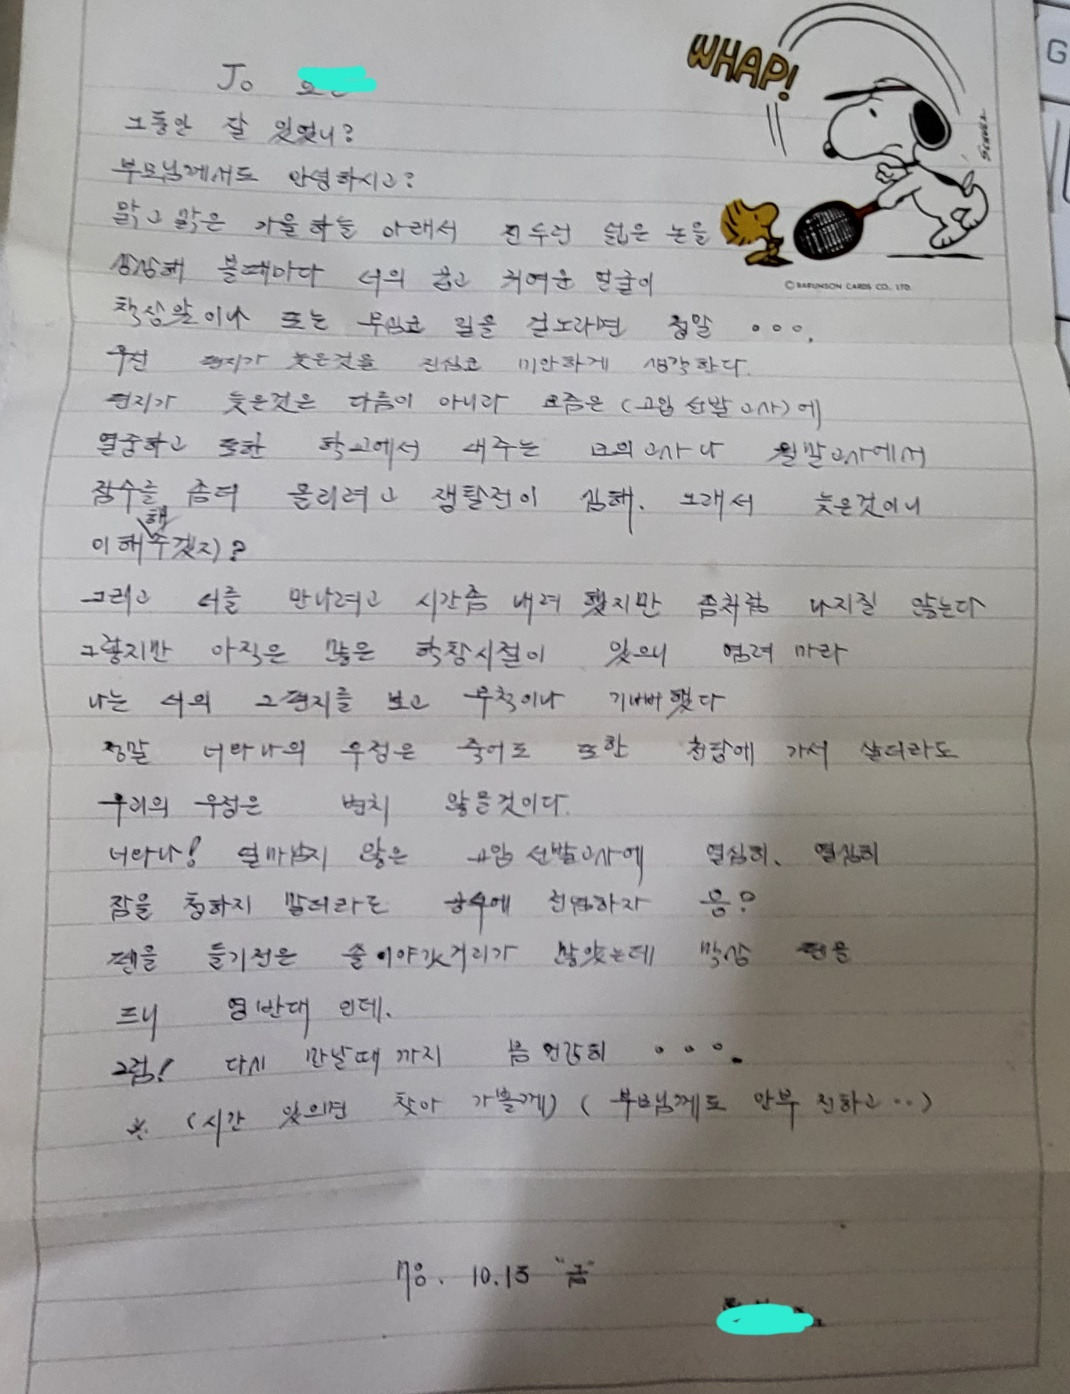 WHAP!
To
그동안 잘 있었니?
부모님께서도 안녕하시고?
맑고 맑은 가을하늘 아래서 넓은 논을
상상해 볼때마다 너의 곱고 귀여운 얼굴이
책상앞이나 또는 무심코 길을 걷노라면 정말 ....
우선 편지가 늦은것을 진심코 미안하게 생각한다.
편지가 늦은것은 다름이 아니라 요즘은 (고입 선발 고사)에
열중하고 또한 학교에서 내주는 모의고사나 월말고사에서
점수를 좀더 올리려고 쟁탈전이 심해. 그래서 늦은것이니
이해해주겠지)?
그리고 너를 만나려고 시간좀 내려 했지만 좀처럼 나지질 않는다
그렇지만 아직은 많은 학창시절이 있으니 염려 마라
나는 너의 그편지를 보고 무척이나 기뻐했다
정말 너와나의 우정은 죽어도 또한 천당에 가서 살더라도
우리의 우정은 변치 않을것이다.
너와나! 얼마남지 않은 고입 선발고사에 열심히. 열심히
잠을 청하지 말더라도 공부에 전념하자 응?
펜을 들기전은 쓸이야깃거리가 많았는데 막상 펜을
드니 영반대 인데.
그럼! 다시 만날때 까지 몸 건강히 ....
※ (시간 있으면 찾아 가볼께) (부모님께도 안부 전하고..)
10.13 "금"
SCHULZ
© BARUNSON CARDS CO., LTD.
G